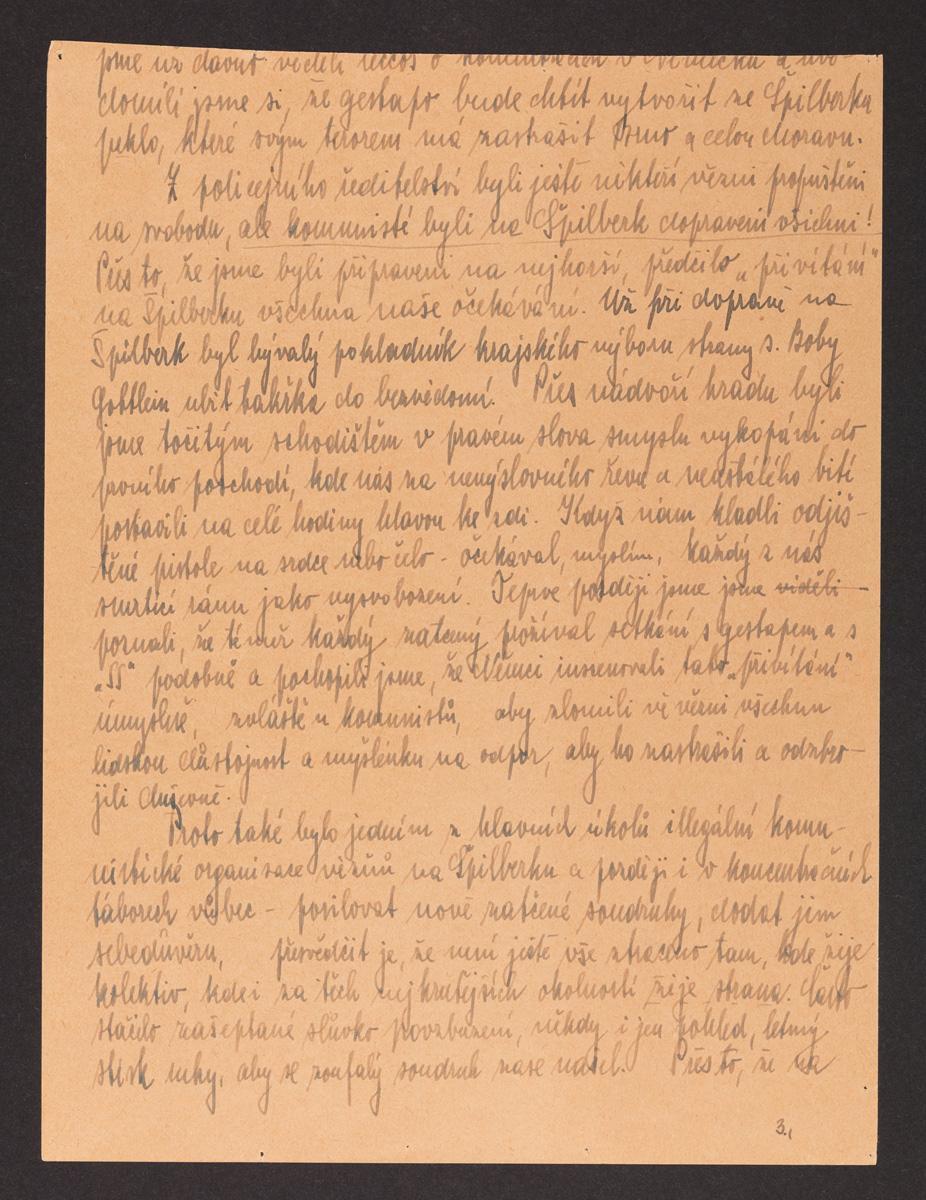 jsme už dávno věděli něco o komunistech v Německu a uvě-
domili jsme si, že gestapo bude chtít vytvořit ze Špilberku
peklo, které svým terorem má zastrašit Brno a celou Moravu.
Z policejního ředitelství byli ještě někteří vězni propuštěni
na svobodu, ale komunisté byli na Špilberk dopraveni všichni!
Přes to, že jsme byli připraveni na nejhorší, předčilo „přivítání"
na Špilberku všechna naše očekávání. Už při dopravě na
Špilberk byl bývalý pokladník krajského výboru strany s. Boby
Gottlein ubit takřka do bezvědomí. Přes nádvoří hradu byli
jsme točitým schodištěm v pravém slova smyslu vykopáni do
prvního poschodí, kde nás za nevýslovného řevu a neustálého bití
postavili na celé hodiny hlavou ke zdi. Když nám kladli odjiš-
těné pistole na srdce nebo čelo - očekával, myslím, každý z nás
smrtící ránu jako vysvobození. Teprve později jsme jsme viděli
poznali, že téměř každý zatčený prožíval setkání s gestapem a s
„SS" podobně a pochopili jsme, že Němci inscenovali tato „přivítání"
úmyslně, zvláště u komunistů, aby zlomili ve vězni všechnu
lidskou důstojnost a myšlenku na odpor, aby ho zastrašili a odzbro-
jili duševně.
Proto také bylo jedním z hlavních úkolů illegální komu-
nistické organisace vězňů na Špilberku a později i v koncentračních
táborech vůbec - posilovat nově zatčené soudruhy, dodat jim
sebedůvěru, přesvědčit je, že není ještě vše ztraceno tam, kde žije
kolektiv, kde i za těch nejkrutějších okolností žije strana. Často
stačilo zašeptané slůvko povzbuzení, někdy i jen pohled, letmý
stisk ruky, aby se zoufalý soudruh zase našel. Přes to, že na
3.,